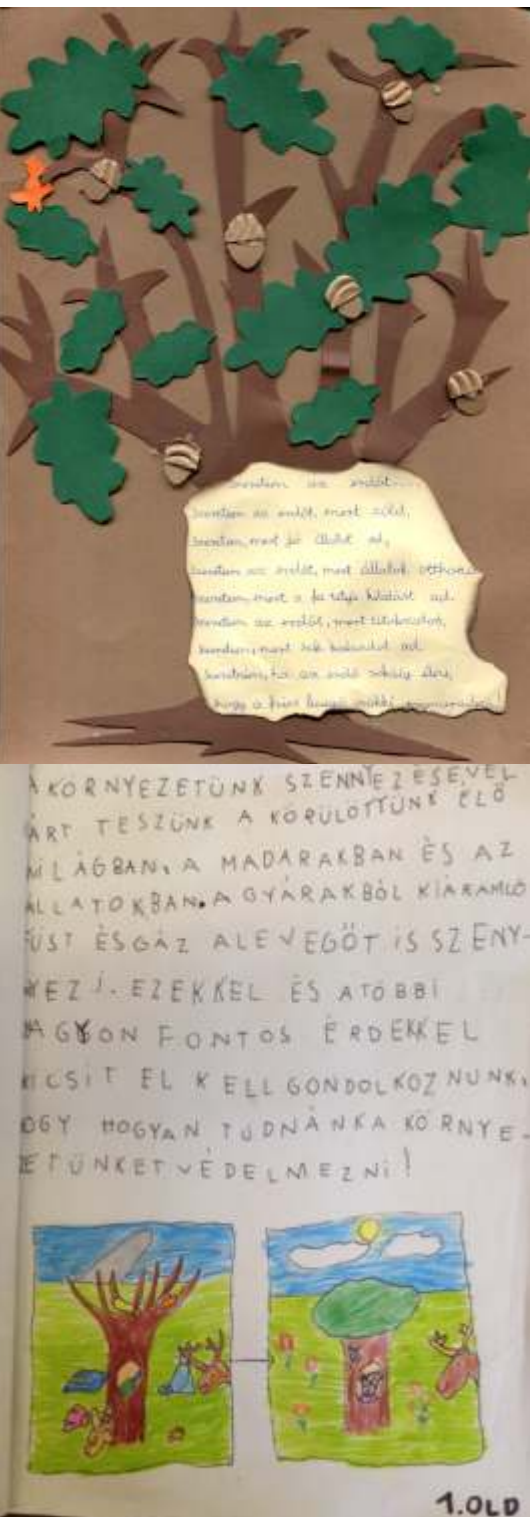 Szeretem az erdőt....
Szeretem az erdőt, mert zöld,
Szeretem, mert jó illatot ad,
Szeretem az erdőt, mert állatok otthona
Szeretem, mert a fa tetje kilátást ad.
Szeretem az erdőt, mert titokzatos,
Szeretem, mert sok kalandot ad.
Szeretném, ha az erdő sokáig élne,
hogy a kint levő makki
A KÖRNYEZETÜNK SZENNYEZÉSÉVEL
ÁRT TESZÜNK A KÖRÜLÖTTÜNK ÉLŐ
VILÁGBAN, A MADARAKBAN ÉS AZ
ÁLLATOKBAN. A GYÁRAKBÓL KIÁRAMLÓ
FÜST ÉSGÁZ ALEVEGŐT IS SZENY-
NYEZI. EZEKKEL ÉS ATÖBBI
NAGYON FONTOS ÉRDEKKEL
KICSIT EL KELLGONDOLKOZNUNK,
HOGY HOGYAN TUDNÁNKA KÖRNYE-
ZETÜNKETVÉDELMEZNI!
1.OLD